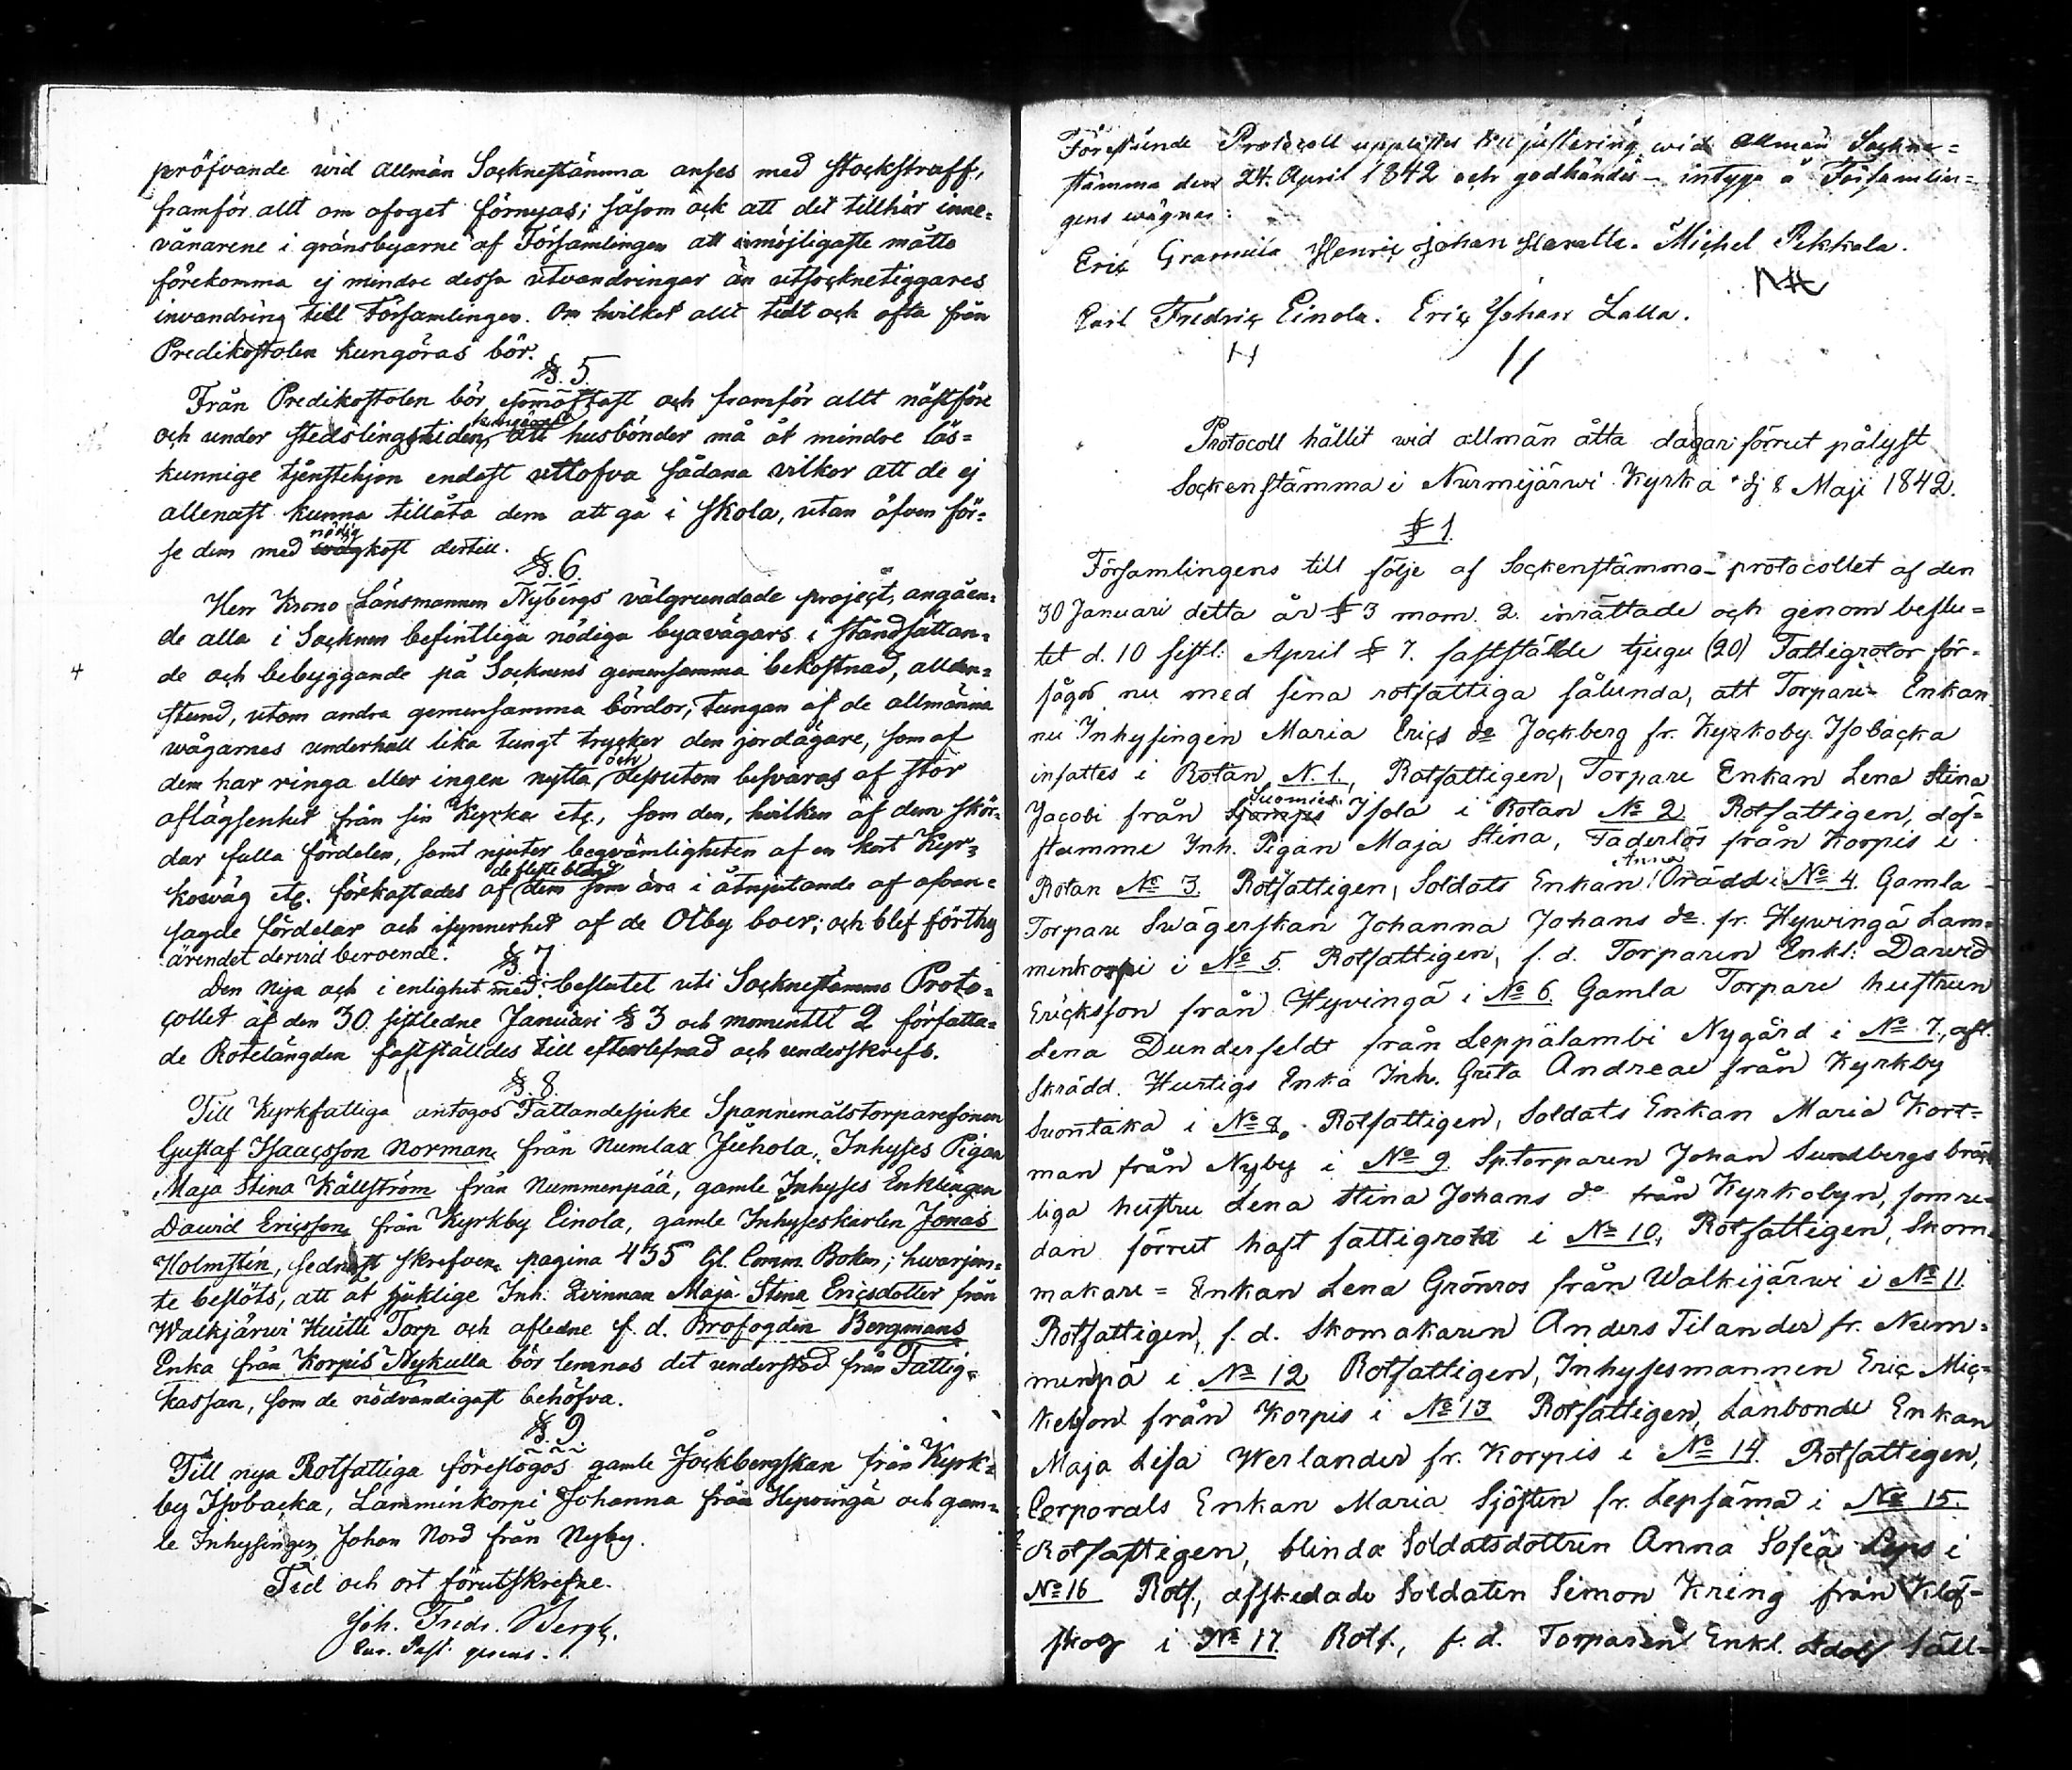 pröfvande wid allmän Sockneståmma anses med stockstraff,
framför allt om ofoget förnyas; såsom ock att det tillhör inne=
vånarene i gränsbyarne af Församlingen att i möjligaste måtto
förekomma ej mindre dessa utvandringar än utsocknetiggares
invandring till Församlingen. Om hvilket allt tidt och ofta från
Predikostolen kungöras bör.
§. 5.
Från Predikostolen bör som oftast och framför allt nästföre
och under stedslingstiden kungöras att husbönder må åt mindre läs=
kunnige tjenstehjon endast uttofva sådana vilkor att de ej
allenast kunna tillåta dem att gå i skola, utan äfven för=
se dem med nödig kost dertill.
§. 6.
Herr Krono Länsmannen Nybergs välgrundade project, angåen=
de alla i Socknen befintliga nödiga byavägars i ståndsättan=
de och bebyggande på Socknens gemensamma bekostnad, allden=
stund, utom andra gemensamma bördor, tungan af de allmänna
wägarnes underhåll lika tungt trycker den jordägare, som af
dem har ringa eller ingen nytta, och dessutom besväras af stor
aflägsenhet från sin Kyrka etc., som den, hvilken af dem skör=
dar fulla fördelen, samt njuter beqvämligheten af en kort Kyr=
koväg etc. förkastades af de fleste bland dem som äro i åtnjutande af ofvan=
sagde fördelar och isynnerhet af de Olby boer; och blef förthy
ärendet dervid beroende.
§. 7
Den nya och i enlighet med beslutet uti Sockneståmmo Proto=
collet af den 30 sistledne Januari § 3 och momentet 2 författa=
de Rotelängden fastställdes till efterlefnad och underskrefs.
§. 8.
Till Kyrkfattiga antogos Fallandesjuke Spannemålstorparesonen
Gustaf Isaacsson Norman från Numlax Juhola, Inhyses Pigan
Maja Stina Källström från Nummenpää, gamle Inhyses Enklingen
David Ericsson från Kyrkby Einola, gamle Inhyseskarlen Jonas
Holmstén, sednast skrefven pagina 435 Gl. Comm. Boken; hvarjem=
te beslöts, att åt sjuklige Inh. Qvinnan Maja Stina Ericsdotter från
Walkjärwi Huitti Torp och afledne f. d. Brofogden Bergmans
Enka från Korpis Nykulla bör lemnas det understöd från Fattig=
kassan, som de nödvändigast behöfva.
§. 9
Till nya Rotfattiga föreslogos gamle Jockbergskan från Kyrk=
by Isobacka, Lamminkorpi Johanna från Hyvingä och gam=
le Inhysingen Johan Nord från Nyby.
Tid och ort förutskrefne.
Joh. Fredr. Bergh.
Cur. Past. gerens.
Förestående Protocoll upplästes till justering wid allmän Sockne=
stämma den 24. April 1842 och godkändes – intyga å Församlin=
gens wägnar:
Eric Gramula Henric Johan Haratta. Michel Pekkala.
Carl Fredric Einola. Eric Johan Lalla.
Protocoll hållit wid allmän åtta dagar förrut pålyst
Sockenstämma i Nurmijärwi Kyrka dj 8 Maji 1842.
§ 1.
Församlingens till följe af Sockenstämmo-protocollet af den
30 Januari detta år § 3 mom. 2. inrättade och genom beslu=
tet d. 10 sistl: April § 7. fastställde tjugu (20) Fattigrotor för=
sågos nu med sina rotfattiga sålunda, att Torpare Enkan
nu Inhysingen Maria Erics dr Jockberg fr. Kyrkoby Isobacka
insattes i Rotan N. 1., Rotfattigen, Torpare Enkan Lena Stina
Jacobi från Suomies Isola i Rotan No 2 Rotfattigen, döf=
stumme Inh. Pigan Maja Stina, Faderlös från Korpis i
Rotan No 3. Rotfattigen, Soldats Enkan Anna Orädd i No 4. Gamla
Torpare Swägerskan Johanna Johans dr. fr. Hywingä Lam=
minkorpi i No 5. Rotfattigen, f. d. Torparen Enkl: Dawid
Ericksson från Hyvingä i No 6. Gamla Torpare hustrun
Lena Dunderfeldt från Leppälambi Nygård i No 7., afl.
Skrädd. Hurtigs Enka Inh. Greta Andreae från Kyrkby
Suontaka i No 8. Rotfattigen, Soldats Enkan Maria Kort=
man från Nyby i No 9. Sp.torparen Johan Sundbergs bräck
liga hustru Lena Stina Johans dr från Kyrkobyn, som re=
dan förrut haft fattigrota i No 10, Rotfattigen, Skom=
makare = Enkan Lena Grönros från Walkijärwi i No 11.
Rotfattigen, f. d. Skomakaren Anders Tilander fr. Num=
menpä i No 12 Rotfattigen, Inhysesmannen Eric Mic=
kelson från Korpis i No 13 Rotfattigen, Lanbonde Enkan
Maja Lisa Werlander fr. Korpis i No 14. Rotfattigen,
Corporals Enkan Maria Sjösten fr. Lepsämä i No 15.
Rotfattigen, blinda Soldatsdottren Anna Sofia i
No 16 Rotf., afskedade Soldaten Simon Kring från Klöf=
skog i No 17. Rotf., f. d. Torparen Enkl. Adolf Säll=